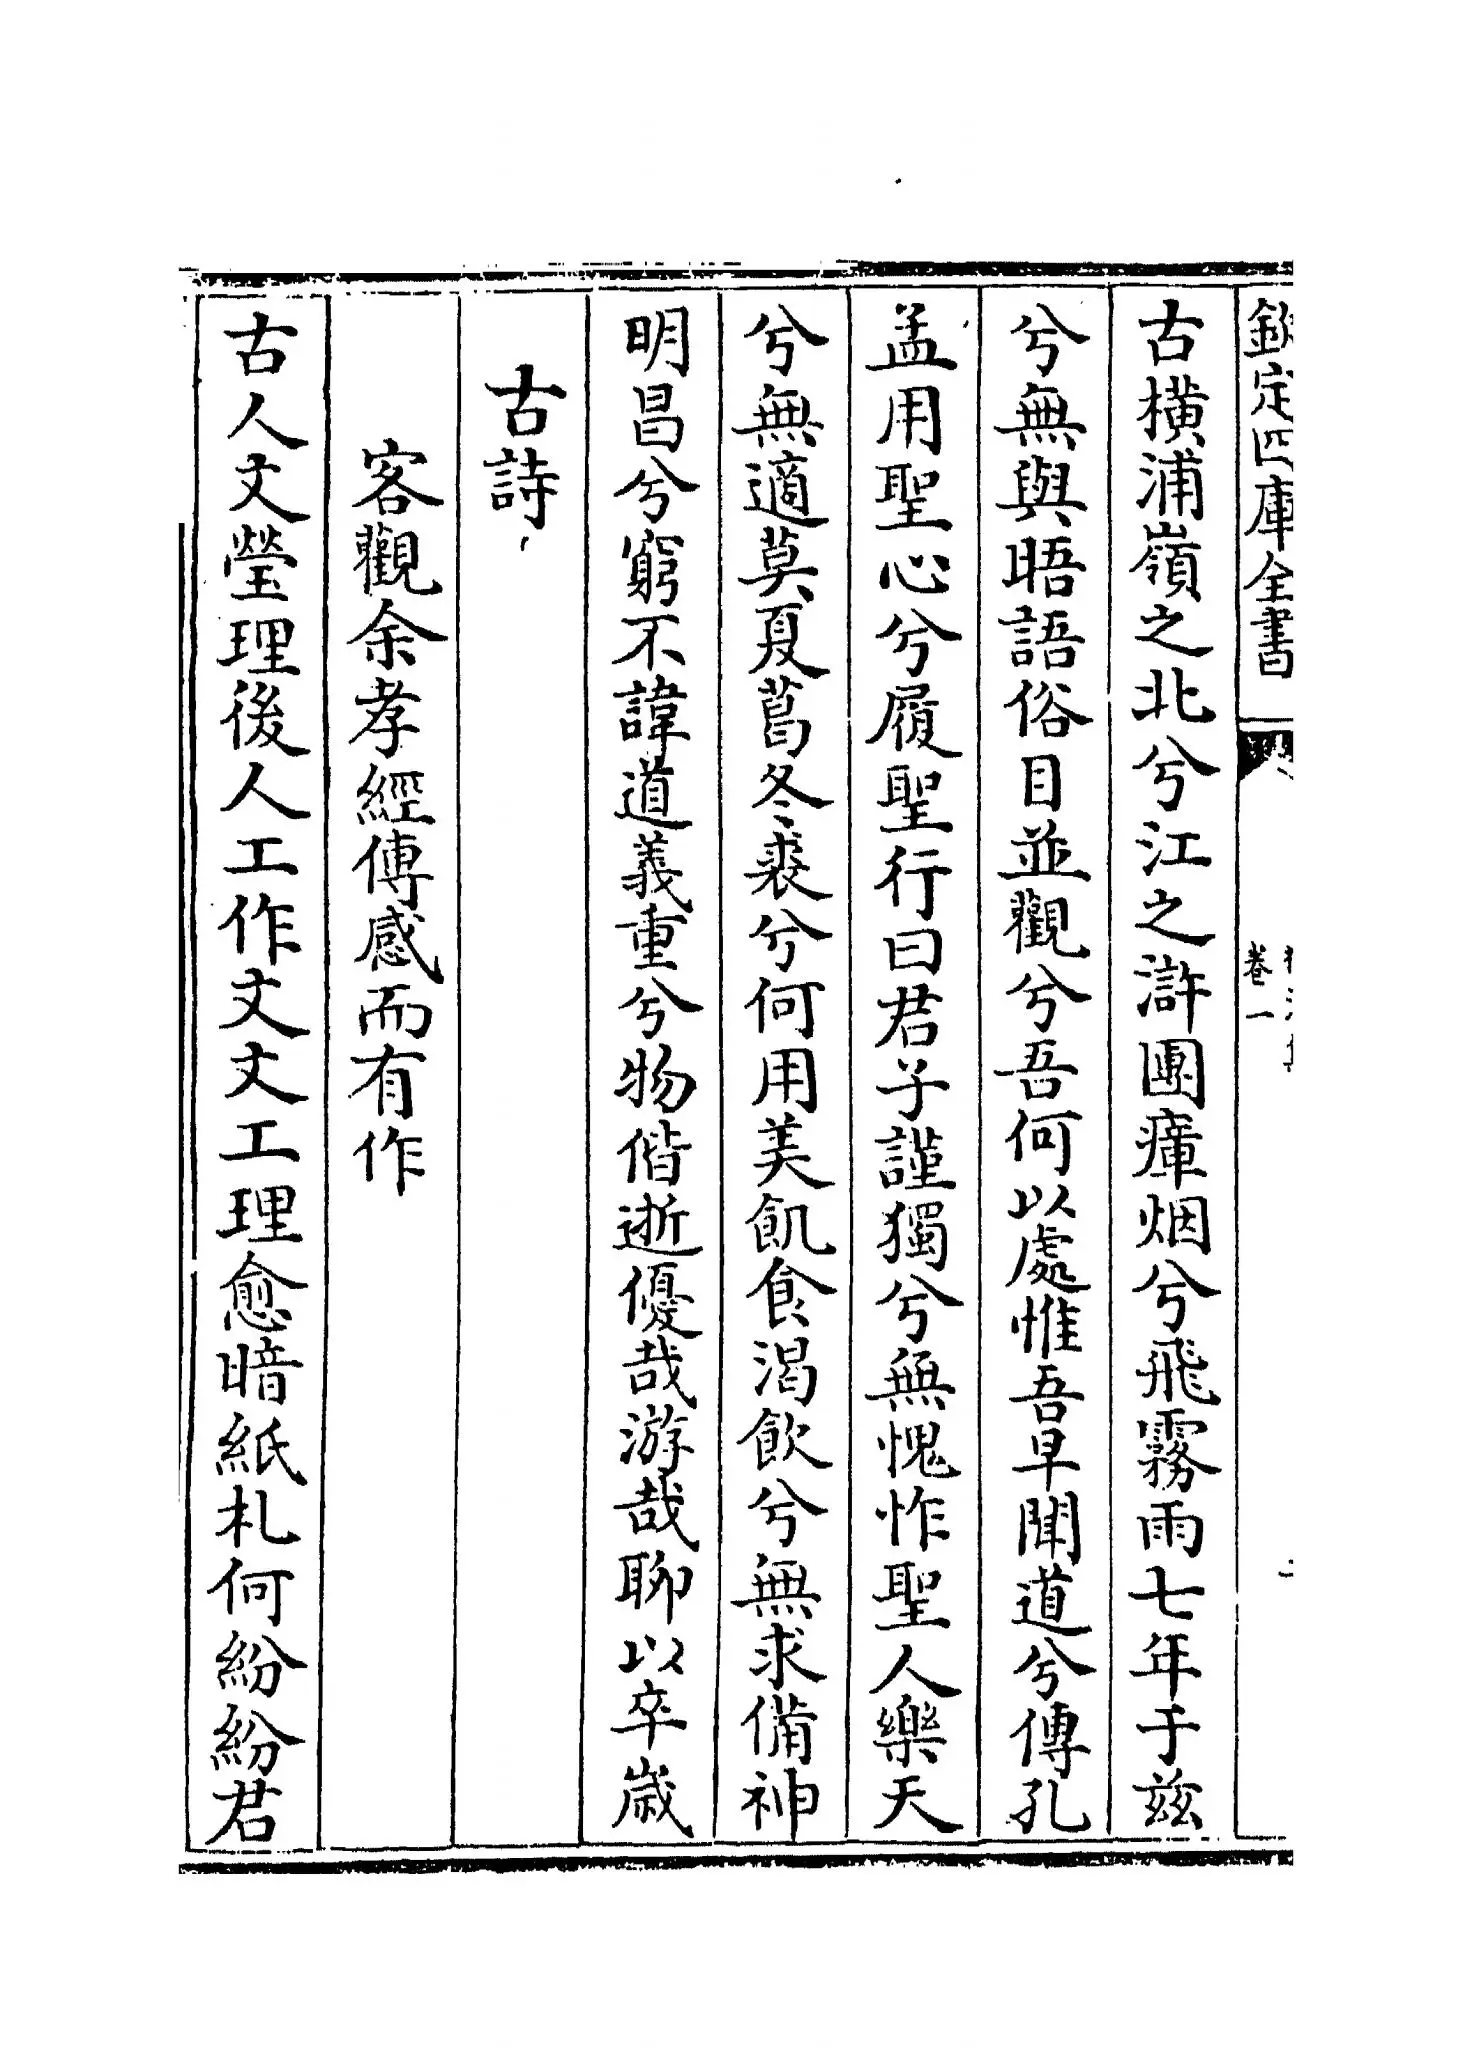 欽定四庫全書
卷一
古橫浦嶺之北兮江之滸團瘴烟兮飛霧雨七年于兹
兮無與晤語俗目並觀兮吾何以處惟吾早聞道兮傳孔
孟用聖心兮履聖行曰君子謹獨兮無愧怍聖人樂天
兮無適莫夏葛冬裘兮何用美飢食渴飲兮無求備神
明昌兮窮不諱道義重兮物偕逝優哉游哉聊以卒歲
古詩
客觀余孝經傳感而有作
古人文瑩理後人工作文文工理愈暗紙札何紛紛君